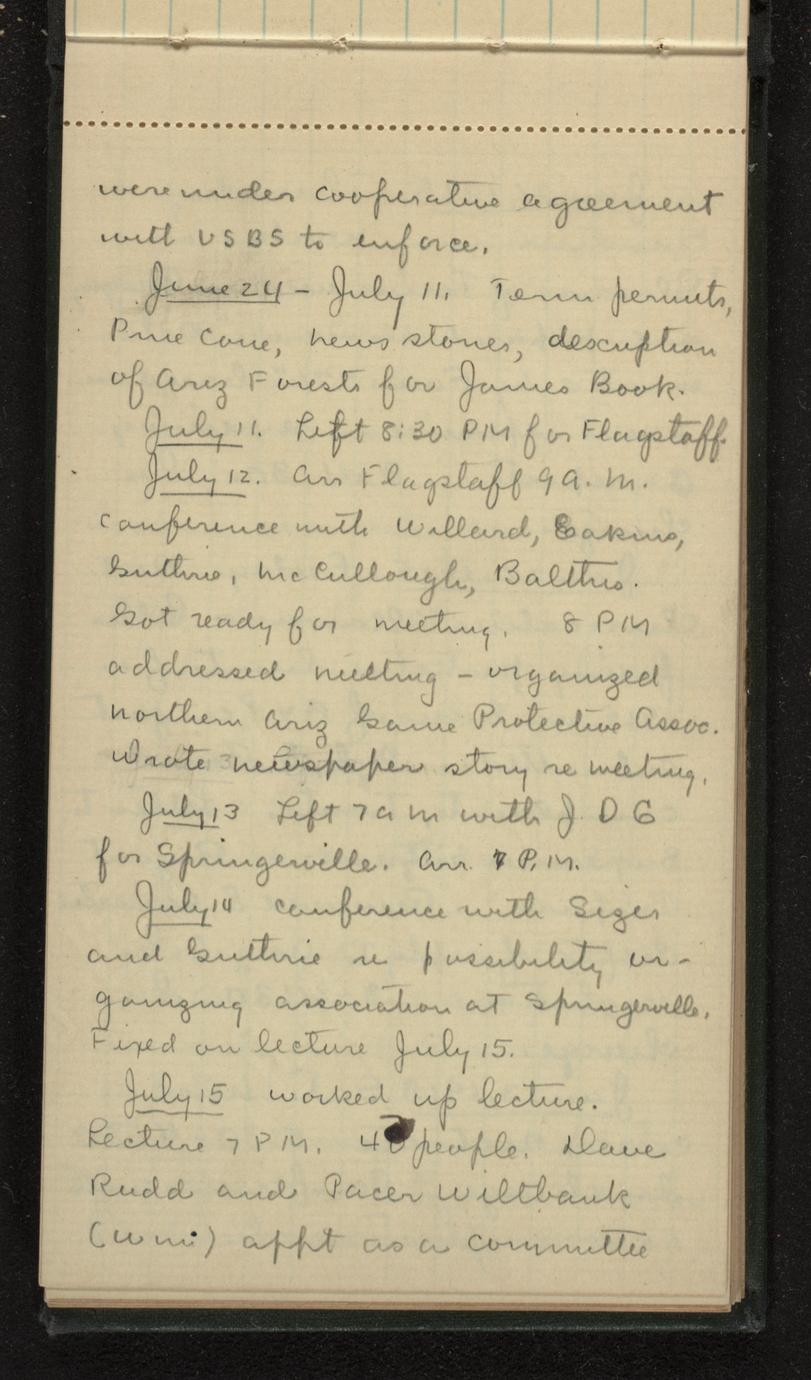 were under cooperative agreement
with USBS to enforce.
June 24 - July 11. Term permits,
Pine Cone, news stories, description
of Ariz Forests for James Book.
July 11. Left 8:30 PM for Flagstaff.
July 12. Arr Flagstaff 9 A. M.
Conference with Willard, Eakins,
Guthrie, McCullough, Balthis.
Got ready for meeting. 8 PM
addressed meeting - organized
Northern Ariz Game Protective Assoc.
Wrote newspaper story re meeting.
July 13 Left 7 AM with J. D G
for Springerville. Arr. 7 P.M.
July 14 Conference with Sizer
and Guthrie re possibility or-
ganizing association at Springerville.
Fixed on lecture July 15.
July 15 worked up lecture.
Lecture 7 PM. 40 people. Dave
Rudd and Pacer Wiltbank
(Wm.) appt as a committee